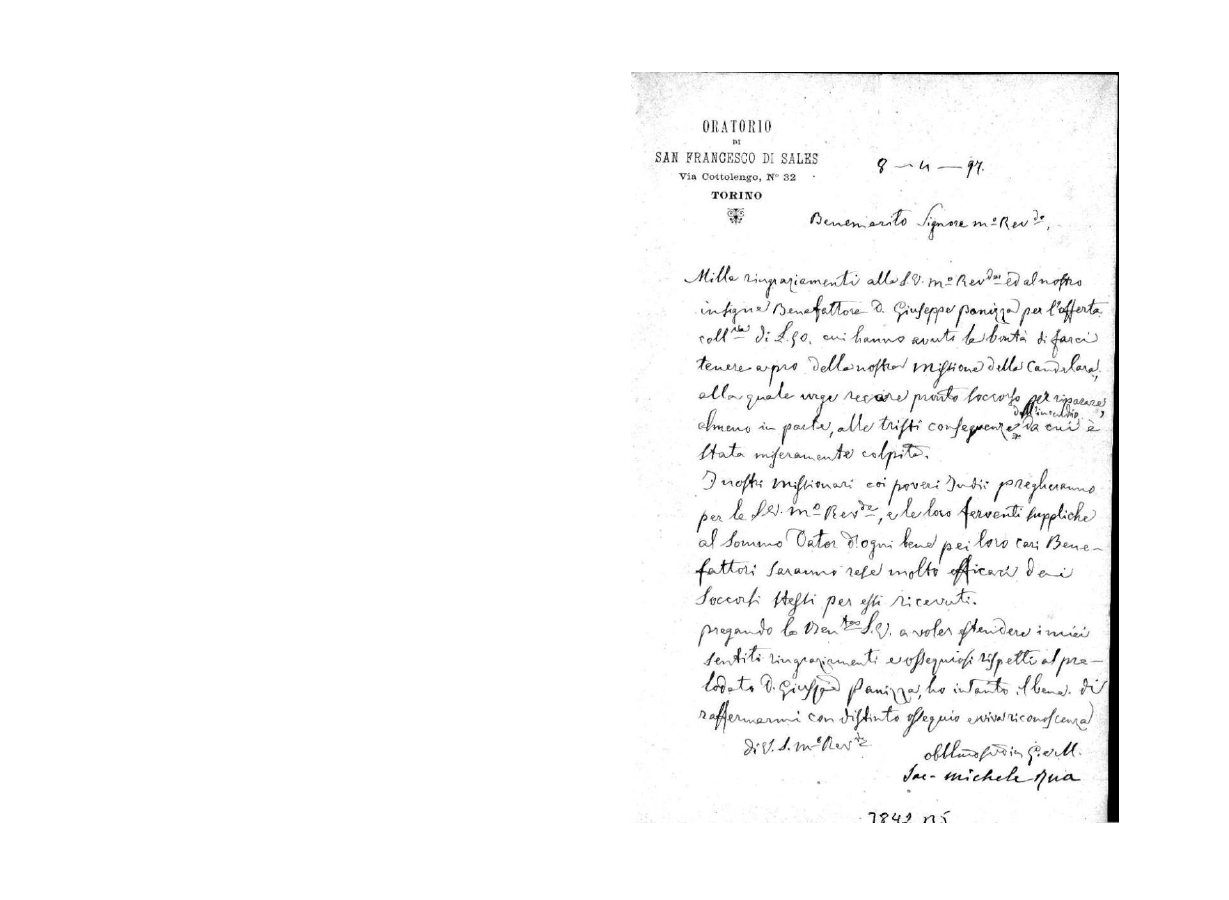 ORATORIO
DI
SAN FRANCESCO DI SALES
Via Cottolengo, N° 32
TORINO
8 — 4 — 97.
Benemerito Signore mº Revdo,
Mille ringraziamenti alla S.V. mº Revda ed al nostro
insigne Benefattore D. Giuseppe Panizza per l'offerta
di L. 50. cui hanno avuto la bontà di farci
tenere a pro della nostra missione della Candelara,
alla quale urge recare pronto soccorso per riparare,
dell'incendio
almeno in parte, alle tristi conseguenze da cui è
stata miseramente colpita.
I nostri missionari coi poveri Indii pregheranno
per le S.V. mº Revde, e le loro ferventi suppliche
al sommo Dator d'ogni bene pei loro cari Bene-
fattori saranno rese molto efficaci dai
soccorsi stessi per essi ricevuti.
Pregando la S.V. a voler estendere i miei
sentiti ringraziamenti e ossequiosi rispetti al pre-
lodato D. Giuseppe Panizza, ho intanto il bene di
raffermarmi con distinto ossequio e viva riconoscenza
di V. S. mº Revda
in G. e M.
Sac. Michele Rua
7842